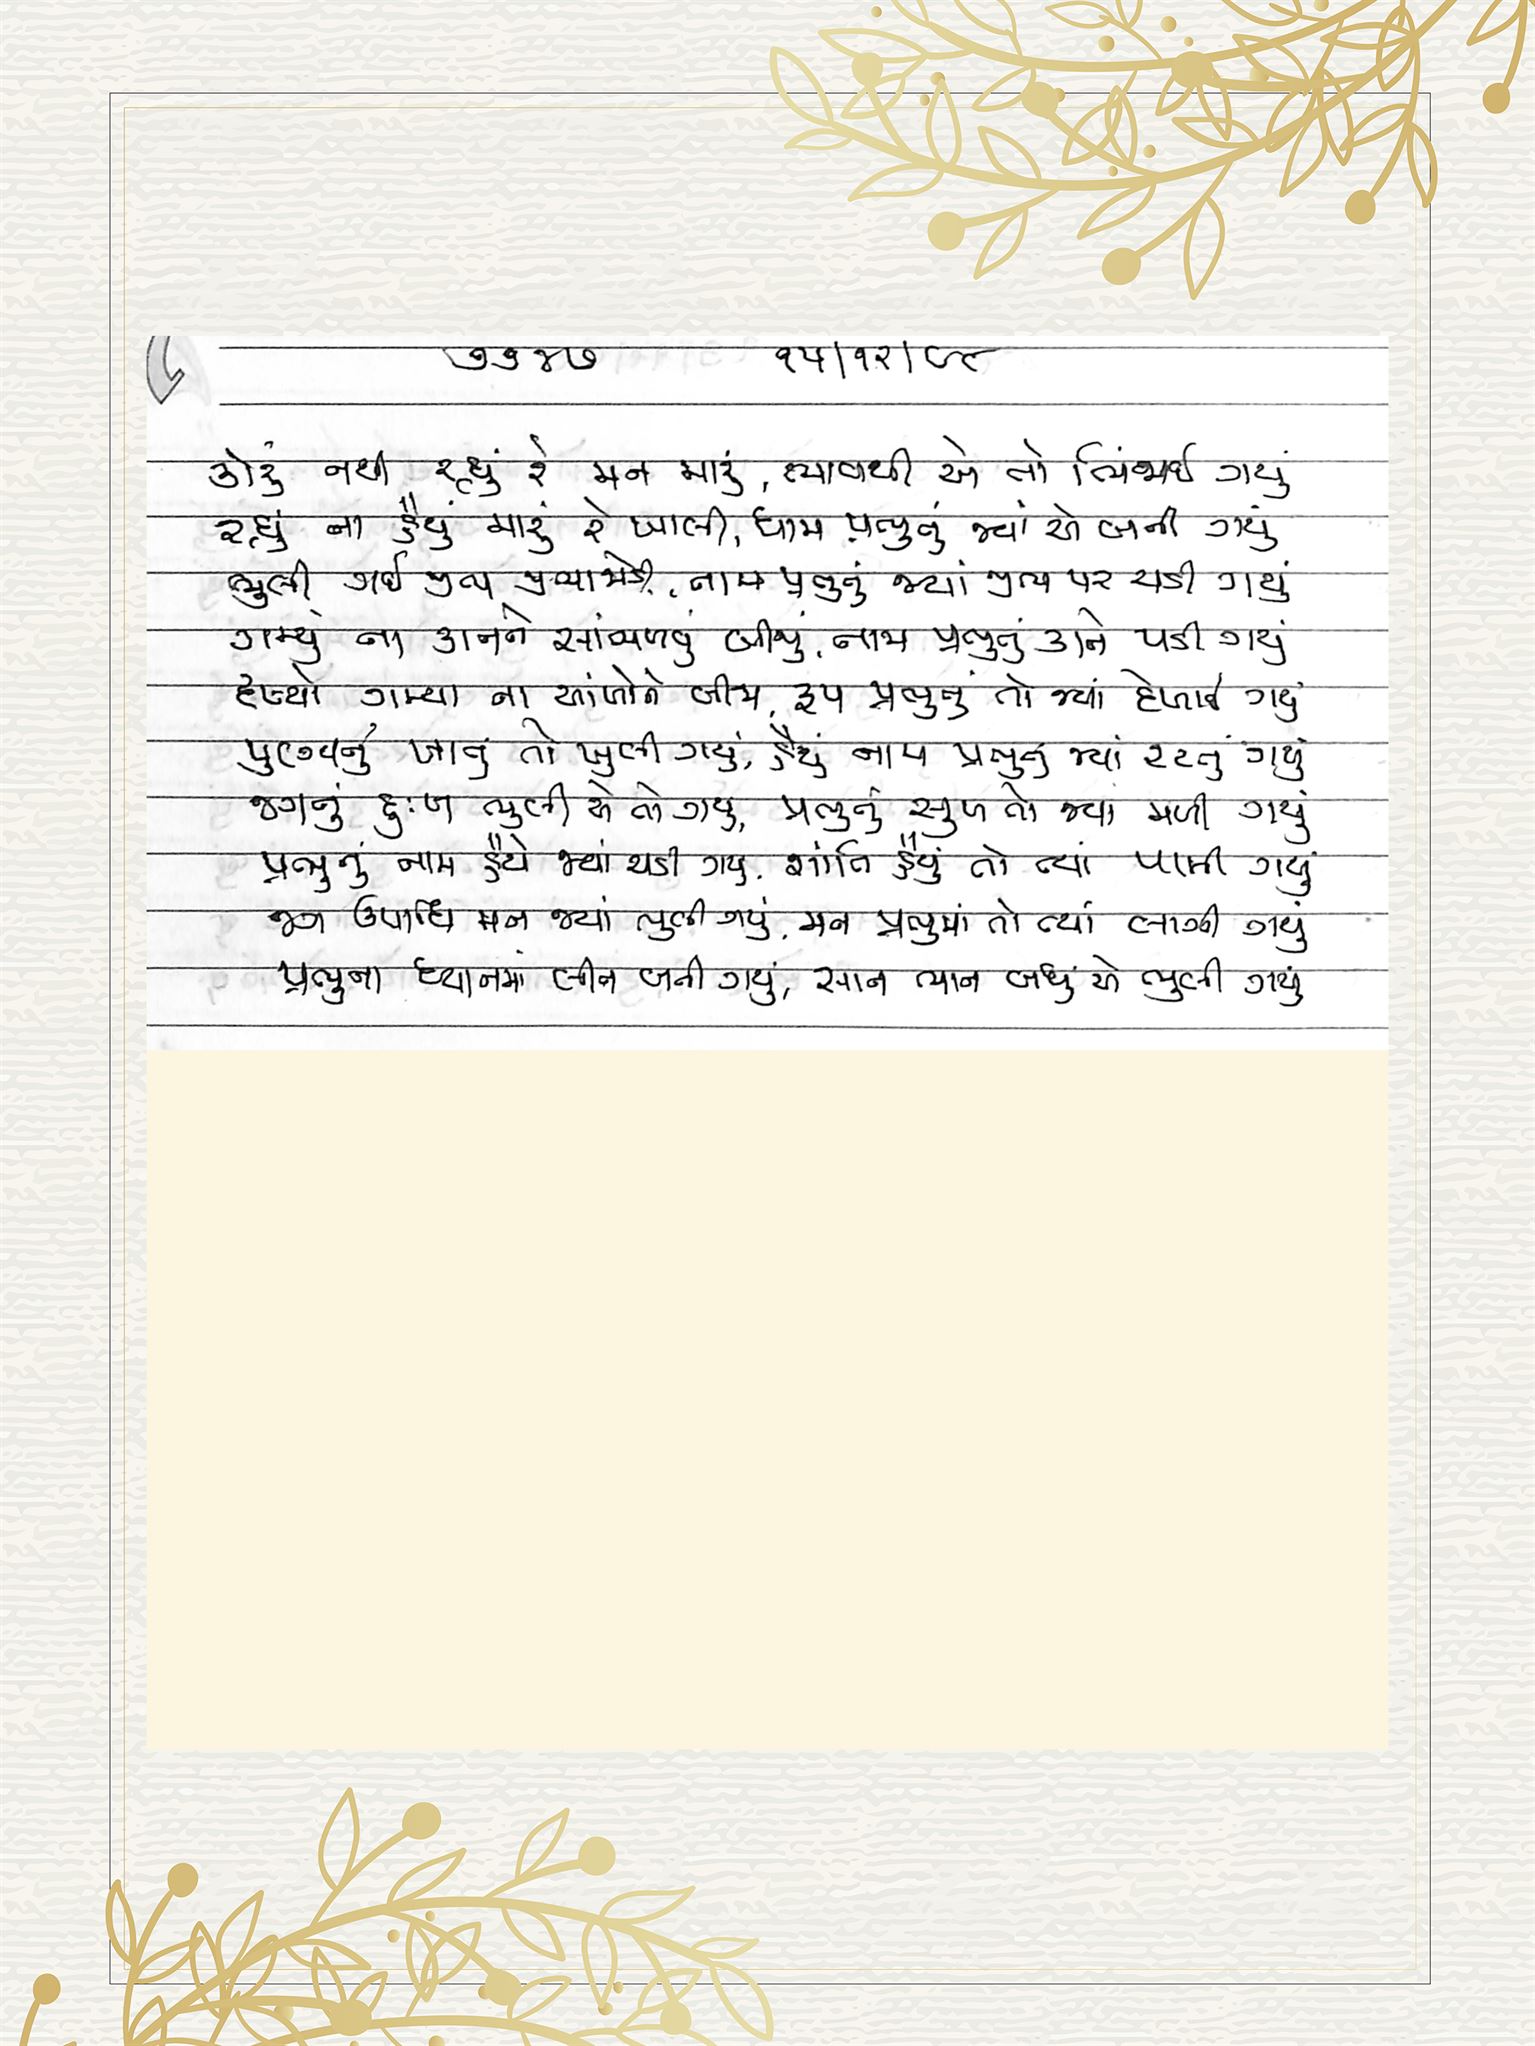 ૭૭૪૭ ૧૫/૧૨/૮૯
કોરું નથી રહ્યું રે મન મારું, ભાવથી એ તો ભિંજાઈ ગયું
રહ્યું ના હૈયું મારું રે ખાલી, ધામ પ્રભુનું જ્યાં એ બની ગયું
ભુલી ગઈ જીભ, નામ પ્રભુનું જ્યાં જીભ પર ચડી ગયું
ગમ્યું ના કાનને સાંભળવું બીજું, નામ પ્રભુનું કાને પડી ગયું
દૃશ્યો ગમ્યા ના આંખોને બીજા, રૂપ પ્રભુનું તો જ્યાં દેખાઈ ગયું
પુણ્યનું ખાનું તો ખુલી ગયું, હૈયું નામ પ્રભુનું જ્યાં રટતું ગયું
જગનું દુઃખ ભુલી એ તો ગયું, પ્રભુનું સુખ તો જ્યાં મળી ગયું
પ્રભુનું નામ હૈયે જ્યાં ચડી ગયું, શાંતિ હૈયું તો ત્યાં પામી ગયું
જગ ઉપાધિ મન જ્યાં ભુલી ગયું, મન પ્રભુમાં તો ત્યાં લાગી ગયું
પ્રભુના ધ્યાનમાં લીન બની ગયું, સાન ભાન બધું એ ભુલી ગયું